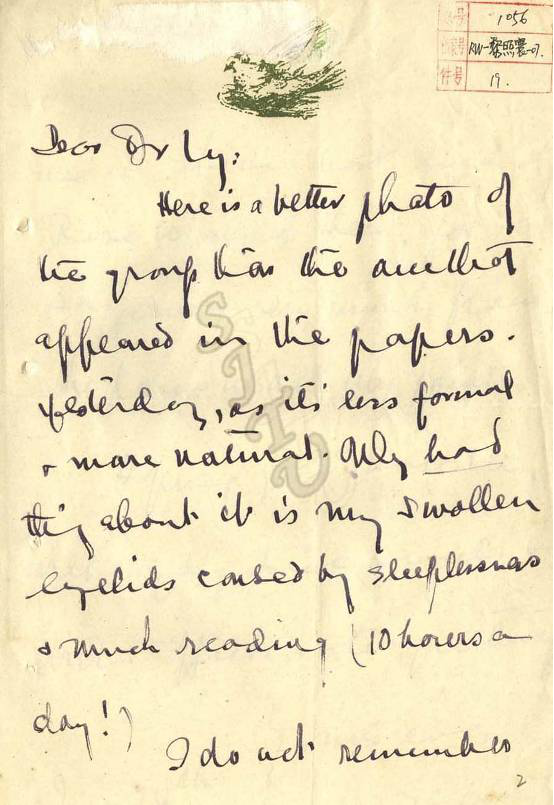 1056
RW-黎照寰-07.
件号 19.
Dear Dr Ly:
Here is a better photo of
the group than the one that
appeared in the papers.
Yesterday, as it's less formal
+ more natural. Only bad
thing about it is my swollen
eyelids caused by sleeplessness
& much reading (10 hours a
day!)
I do not remember
SJTU
2